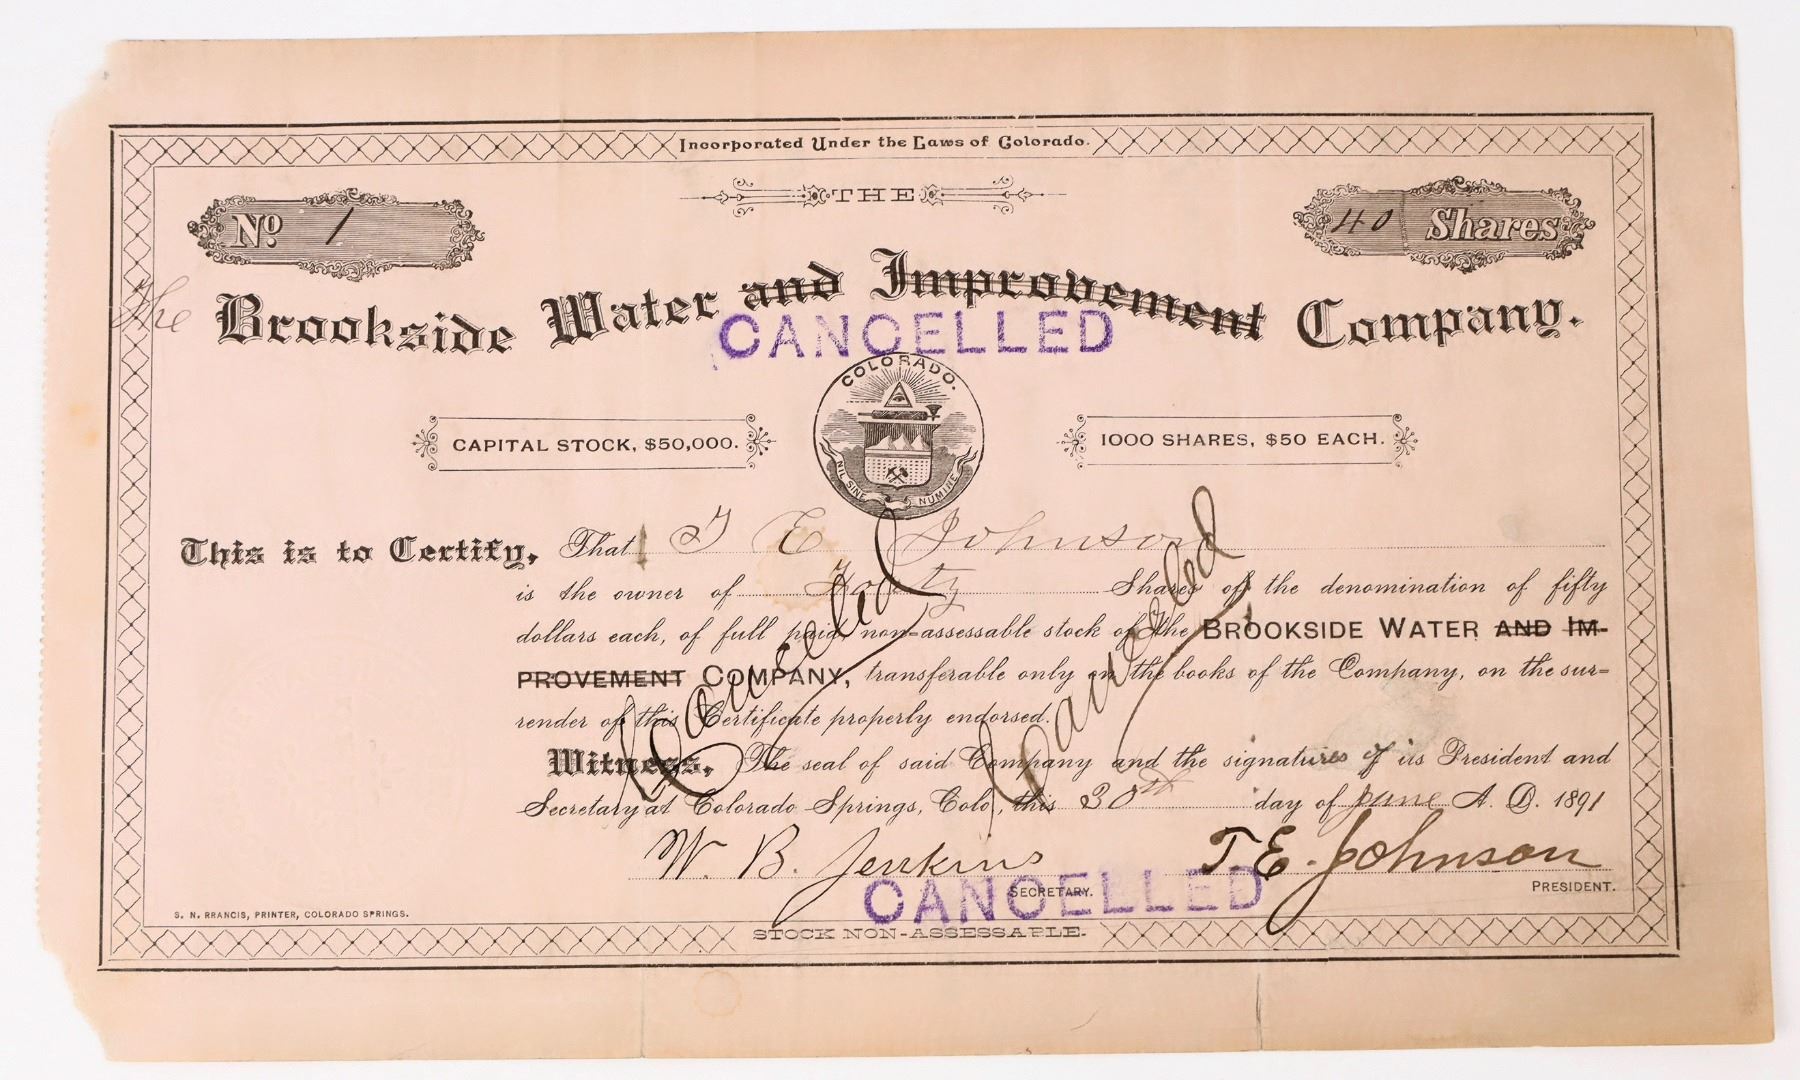 Incorporated Under the Laws of Colorado.
THE
No. 1
40 Shares
The
Brookside Water and Improvement Company.
CANCELLED
COLORADO.
NIL SINE NUMINE
CAPITAL STOCK, $50,000.
1000 SHARES, $50 EACH.
This is to Certify, That T E Johnson
is the owner of Forty Shares of the denomination of fifty
dollars each, of full paid non-assessable stock of The BROOKSIDE WATER AND IM-
PROVEMENT COMPANY, transferable only on the books of the Company, on the sur-
render of this Certificate properly endorsed.
Cancelled
Cancelled
Witness, The seal of said Company and the signatures of its President and
Secretary at Colorado Springs, Colo., this 30th day of June A. D. 1891
W. B. Jenkins
T. E. Johnson
SECRETARY.
PRESIDENT.
CANCELLED
S. N. RRANCIS, PRINTER, COLORADO SPRINGS.
STOCK NON-ASSESSABLE.